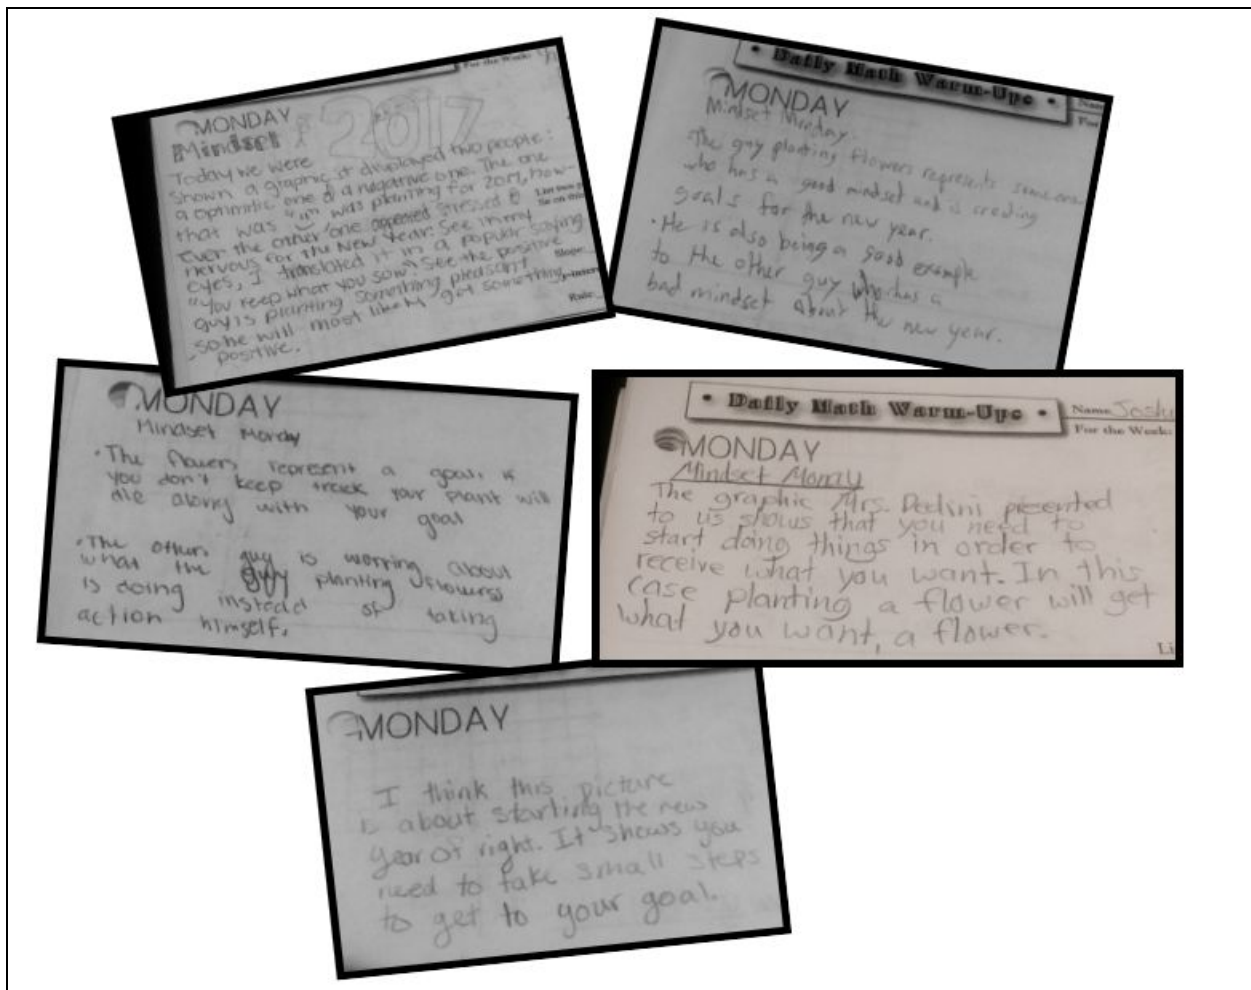 For the Week:
MONDAY
Mindset 2017
Today we were
shown a graphic it displayed two people:
a optimistic one & a negative one. The one
that was "" was planting for 2017, how-
ever the other one appeared stressed &
nervous for the New Year. See in my
eyes, I translated it in a popular saying
"You reep what you sow". See the positive
guy is planting something pleasant
so he will most likely get something
positive.
Slope:
Rule:
• Daily Math Warm-Ups •
MONDAY
Mindset Monday
The guy planting flowers represents someone
who has a good mindset and is creating
goals for the new year.
• He is also being a good example
to the other guy who has a
bad mindset about the new year.
MONDAY
Mindset Monday
• The flowers represent a goal, if
you don't keep track your plant will
die along with your goal
• The other guy is worring about
what the guy planting flowers
is doing instead of taking
action himself.
• Daily Math Warm-Ups •
Name Joshu
For the Week:
MONDAY
Mindset Monay
The graphic Mrs. presented
to us shows that you need to
start doing things in order to
receive what you want. In this
case planting a flower will get
what you want, a flower.
Li
MONDAY
I think this picture
is about starting the new
year of right. It shows you
need to take small steps
to get to your goal.